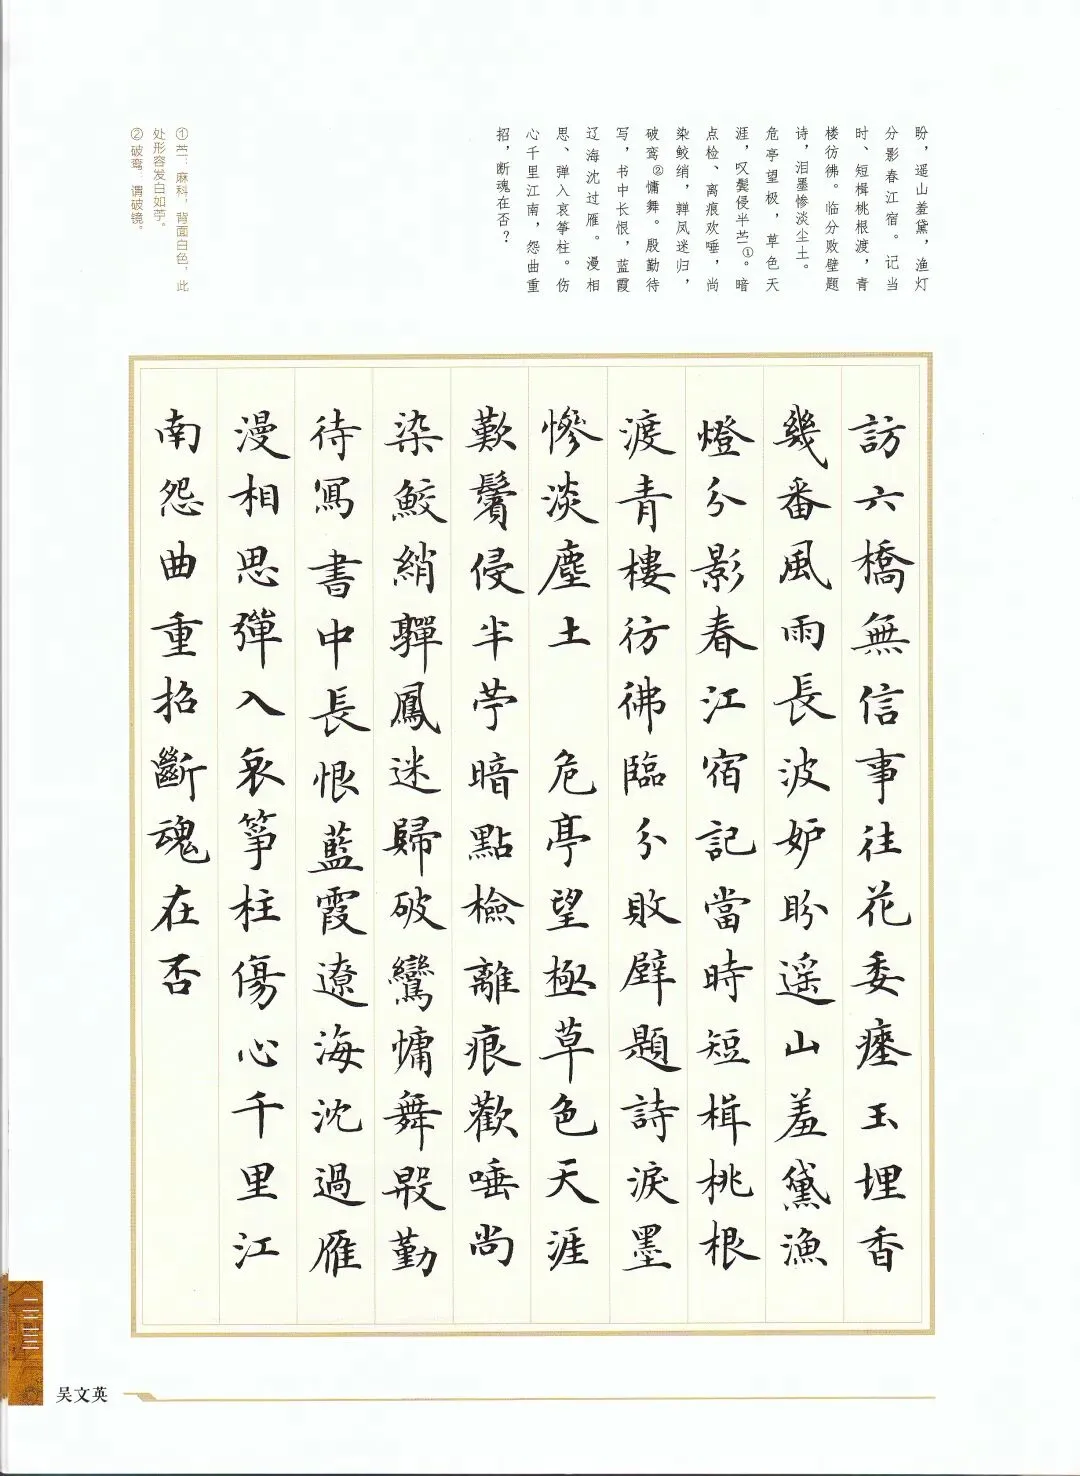 盼，遥山羞黛，渔灯
分影春江宿。记当
时、短楫桃根渡，青
楼彷彿。临分败壁题
诗，泪墨惨淡尘土。
危亭望极，草色天
涯，叹鬓侵半苎①。暗
点检、离痕欢唾，尚
染鲛绡，亸凤迷归，
破鸾②慵舞。殷勤待
写，书中长恨，蓝霞
辽海沈过雁。漫相
思、弹入哀筝柱。伤
心千里江南，怨曲重
招，断魂在否？
①苎：麻科，背面白色，此
处形容发白如苧。
②破鸾：谓破镜。
訪六橋無信事往花委瘞玉埋香
幾番風雨長波妒盼遥山羞黛漁
燈分影春江宿記當時短楫桃根
渡青樓彷彿臨分敗壁題詩淚墨
慘淡塵土 危亭望極草色天涯
歎鬢侵半苧暗點檢離痕歡唾尚
染鮫綃嚲鳳迷歸破鸞慵舞殷勤
待寫書中長恨藍霞遼海沈過雁
漫相思彈入哀筝柱傷心千里江
南怨曲重招斷魂在否
二二三
吴文英